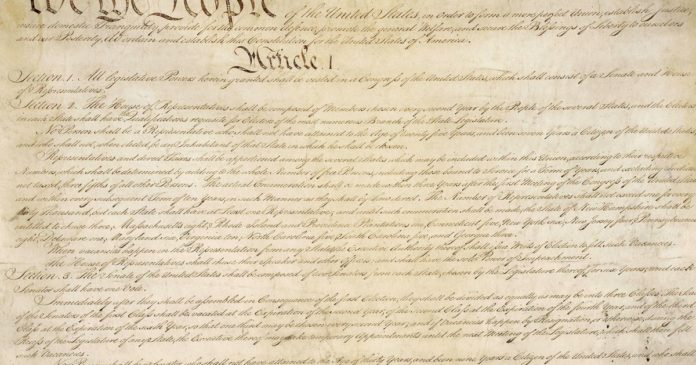 We the People of the United States, in Order to form a more perfect Union, establish Justice,
insure domestic Tranquility, provide for the common defence, promote the general Welfare, and secure the Blessings of Liberty to ourselves
and our Posterity, do ordain and establish this Constitution for the United States of America.
Article. I.
Section. 1. All legislative Powers herein granted shall be vested in a Congress of the United States, which shall consist of a Senate and House
of Representatives.
Section. 2. The House of Representatives shall be composed of Members chosen every second Year by the People of the several States, and the Electors
in each State shall have the Qualifications requisite for Electors of the most numerous Branch of the State Legislature.
No Person shall be a Representative who shall not have attained to the Age of twenty five Years, and been seven Years a Citizen of the United States,
and who shall not, when elected, be an Inhabitant of that State in which he shall be chosen.
Representatives and direct Taxes shall be apportioned among the several States which may be included within this Union, according to their respective
Numbers, which shall be determined by adding to the whole Number of free Persons, including those bound to Service for a Term of Years, and excluding Indians
not taxed, three fifths of all other Persons. The actual Enumeration shall be made within three Years after the first Meeting of the Congress of the United States,
and within every subsequent Term of ten Years, in such Manner as they shall by Law direct. The Number of Representatives shall not exceed one for every
thirty Thousand, but each State shall have at Least one Representative; and until such enumeration shall be made, the State of New Hampshire shall be
entitled to chuse three, Massachusetts eight, Rhode-Island and Providence Plantations one, Connecticut five, New-York six, New Jersey four, Pennsylvania
eight, Delaware one, Maryland six, Virginia ten, North Carolina five, South Carolina five, and Georgia three.
When vacancies happen in the Representation from any State, the Executive Authority thereof shall issue Writs of Election to fill such Vacancies.
The House of Representatives shall chuse their Speaker and other Officers; and shall have the sole Power of Impeachment.
Section. 3. The Senate of the United States shall be composed of two Senators from each State, chosen by the Legislature thereof, for six Years; and each
Senator shall have one Vote.
Immediately after they shall be assembled in Consequence of the first Election, they shall be divided as equally as may be into three Classes. The Seats
of the Senators of the first Class shall be vacated at the Expiration of the second Year, of the second Class at the Expiration of the fourth Year, and of the third
Class at the Expiration of the sixth Year, so that one third may be chosen every second Year; and if Vacancies happen by Resignation, or otherwise, during the
Recess of the Legislature of any State, the Executive thereof may make temporary Appointments until the next Meeting of the Legislature, which shall then fill
such Vacancies.
No Person shall be a Senator who shall not have attained to the Age of thirty Years, and been nine Years a Citizen of the United States, and who shall